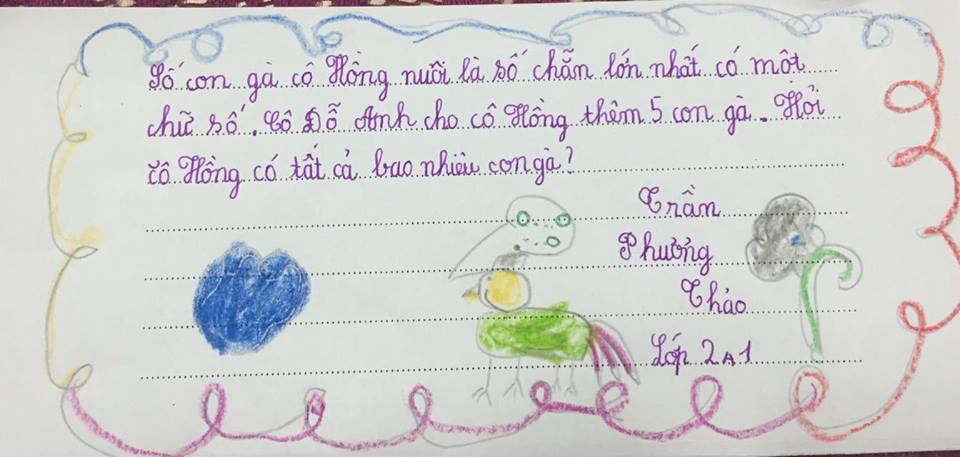 Số con gà cô Hồng nuôi là số chẵn lớn nhất có một
chữ số. Cô Đỗ Anh cho cô Hồng thêm 5 con gà. Hỏi
cô Hồng có tất cả bao nhiêu con gà?
Trần
Phương
Thảo
Lớp 2A1